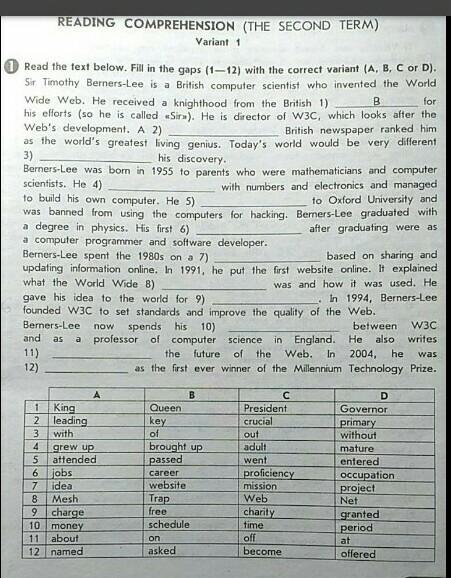 READING COMPREHENSION (THE SECOND TERM)
Variant 1
1 Read the text below. Fill in the gaps (1—12) with the correct variant (A, B, C or D).
Sir Timothy Berners-Lee is a British computer scientist who invented the World
Wide Web. He received a knighthood from the British 1) ____B____ for
his efforts (so he is called «Sir»). He is director of W3C, which looks after the
Web's development. A 2) ________ British newspaper ranked him
as the world's greatest living genius. Today's world would be very different
3) ________ his discovery.
Berners-Lee was born in 1955 to parents who were mathematicians and computer
scientists. He 4) ________ with numbers and electronics and managed
to build his own computer. He 5) ________ to Oxford University and
was banned from using the computers for hacking. Berners-Lee graduated with
a degree in physics. His first 6) ________ after graduating were as
a computer programmer and software developer.
Berners-Lee spent the 1980s on a 7) ________ based on sharing and
updating information online. In 1991, he put the first website online. It explained
what the World Wide 8) ________ was and how it was used. He
gave his idea to the world for 9) ________. In 1994, Berners-Lee
founded W3C to set standards and improve the quality of the Web.
Berners-Lee now spends his 10) ________ between W3C
and as a professor of computer science in England. He also writes
11) ________ the future of the Web. In 2004, he was
12) ________ as the first ever winner of the Millennium Technology Prize.
A B C D
1 King Queen President Governor
2 leading key crucial primary
3 with of out without
4 grew up brought up adult mature
5 attended passed went entered
6 jobs career proficiency occupation
7 idea website mission project
8 Mesh Trap Web Net
9 charge free charity granted
10 money schedule time period
11 about on off at
12 named asked become offered